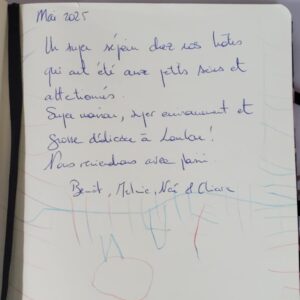 Mai 2025
Un super séjour chez nos hôtes
qui ont été aux petits soins et
attentionnés.
Super maison, super environnement et
grosse dédicace à Loulou!
Nous reviendrons avec plaisir.
Benoit, Melanie, Noé & Chiara